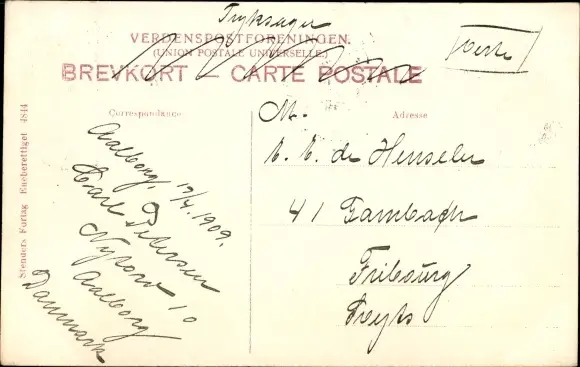 Tryksager
VERDENSPOSTFORENINGEN.
(UNION POSTALE UNIVERSELLE.)
BREVKORT — CARTE POSTALE
Correspondance
Adresse
Stenders Forlag Eneberettiget 4844
Aalborg, 19/4. 1909.
Carl Petersen
Nytorv 10
Aalborg
Danmark
M.
de Henseler
41 Gambach
Fribourg